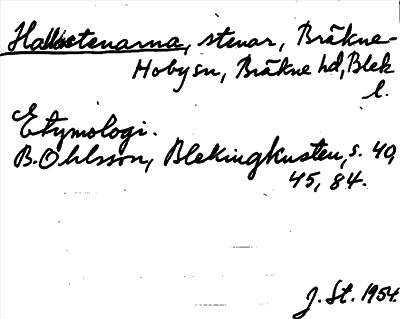 Hallostenarna, stenar, Bräkne-
Hobysn, Bräkne hd, Blek
l.
Etymologi.
B. Ohlsson, Blekingkusten, s. 40,
45, 84.
J. St. 1954.